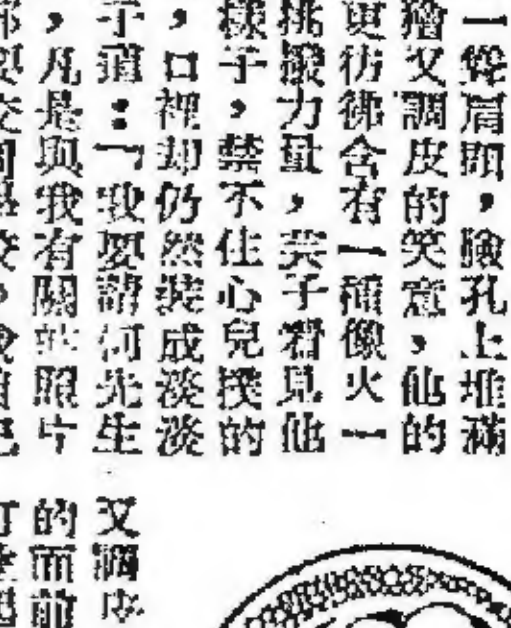 一聳肩頭，臉孔上堆滿
獪又調皮的笑意，他的
更彷彿含有一種像火一
挑撥力量，芸子看見他
樣子，禁不住心兒撲的
，口裡却仍然裝成淡淡
子道：「我要請何先生
，凡是與我有關的照片
又調皮
的面前